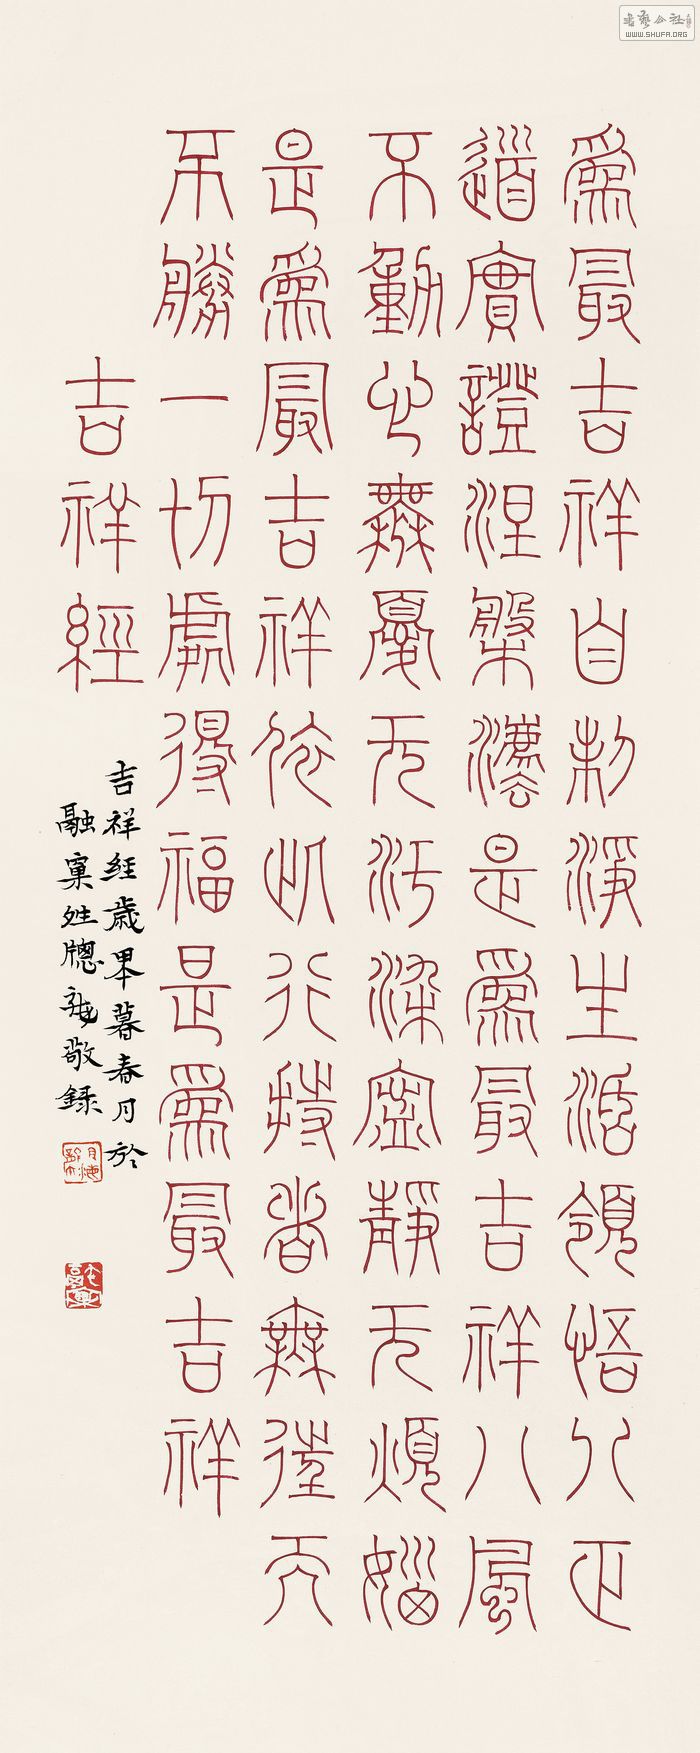 書藝公社
WWW.SHUFA.ORG
爲最吉祥自制淨生活領悟八正
道實證涅槃灋是爲最吉祥八風
不動心無憂无污染寍靜无煩惱
是爲最吉祥依此行持者無往而
不勝一切處得福是爲最吉祥
吉祥經
吉祥經歲暮春月於
融敬錄